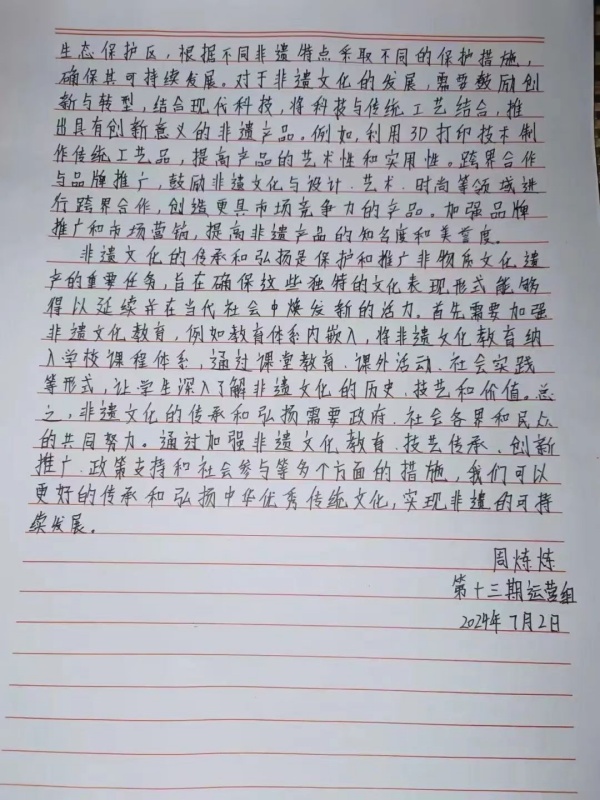 生态保护区，根据不同非遗特点采取不同的保护措施，
确保其可持续发展。对于非遗文化的发展，需要鼓励创
新与转型，结合现代科技，将科技与传统工艺结合，推
出具有创新意义的非遗产品。例如，利用3D打印技术制
作传统工艺品，提高产品的艺术性和实用性。跨界合作
与品牌推广，鼓励非遗文化与设计、艺术、时尚等领域进
行跨界合作，创造更具市场竞争力的产品。加强品牌
推广和市场营销，提高非遗产品的知名度和美誉度。
非遗文化的传承和弘扬是保护和推广非物质文化遗
产的重要任务，旨在确保这些独特的文化表现形式能够
得以延续并在当代社会中焕发新的活力。首先需要加强
非遗文化教育，例如教育体系内嵌入，将非遗文化教育纳
入学校课程体系，通过课堂教育、课外活动、社会实践
等形式，让学生深入了解非遗文化的历史、技艺和价值。总
之，非遗文化的传承和弘扬需要政府、社会各界和民众
的共同努力。通过加强非遗文化教育、技艺传承、创新
推广、政策支持和社会参与等多个方面的措施，我们可以
更好的传承和弘扬中华优秀传统文化，实现非遗的可持
续发展。
周炼炼
第十三期运营组
2024年7月2日